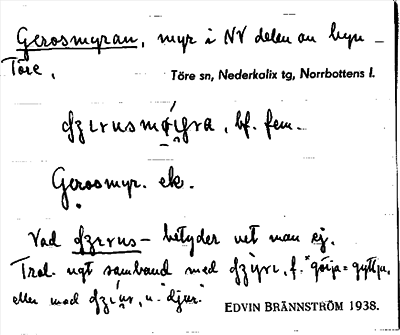 Gerosmyran, myr i NV delen av byn
Töre.
Töre sn, Nederkalix tg, Norrbottens l.
bf. fem.
Gerosmyr. ek.
Vad betyder vet man ej.
Trol. ngt samband med f. = gyttja,
eller med n. "djur."
EDVIN BRÄNNSTRÖM 1938.